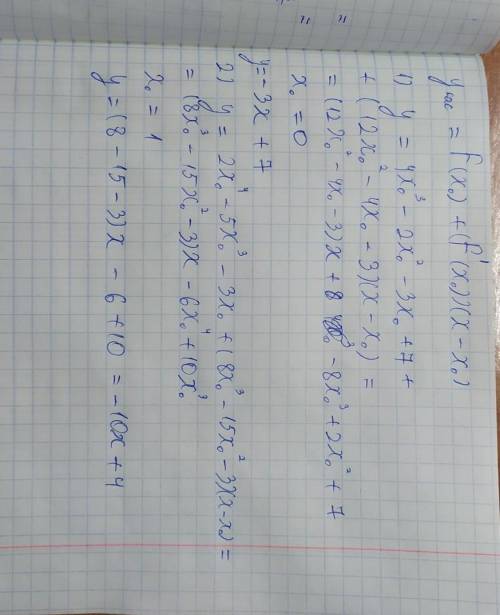 yкас = f(x₀) + (f'(x₀))(x - x₀)
1) y = 4x₀³ - 2x₀² - 3x₀ + 7 +
+ (12x₀² - 4x₀ - 3)(x - x₀) =
= (12x₀² - 4x₀ - 3)x + - 8x₀³ + 2x₀² + 7
x₀ = 0
y = -3x + 7
2) y = 2x₀⁴ - 5x₀³ - 3x₀ + (8x₀³ - 15x₀² - 3)(x - x₀) =
= (8x₀³ - 15x₀² - 3)x - 6x₀⁴ + 10x₀³
x₀ = 1
y = (8 - 15 - 3)x - 6 + 10 = -10x + 4